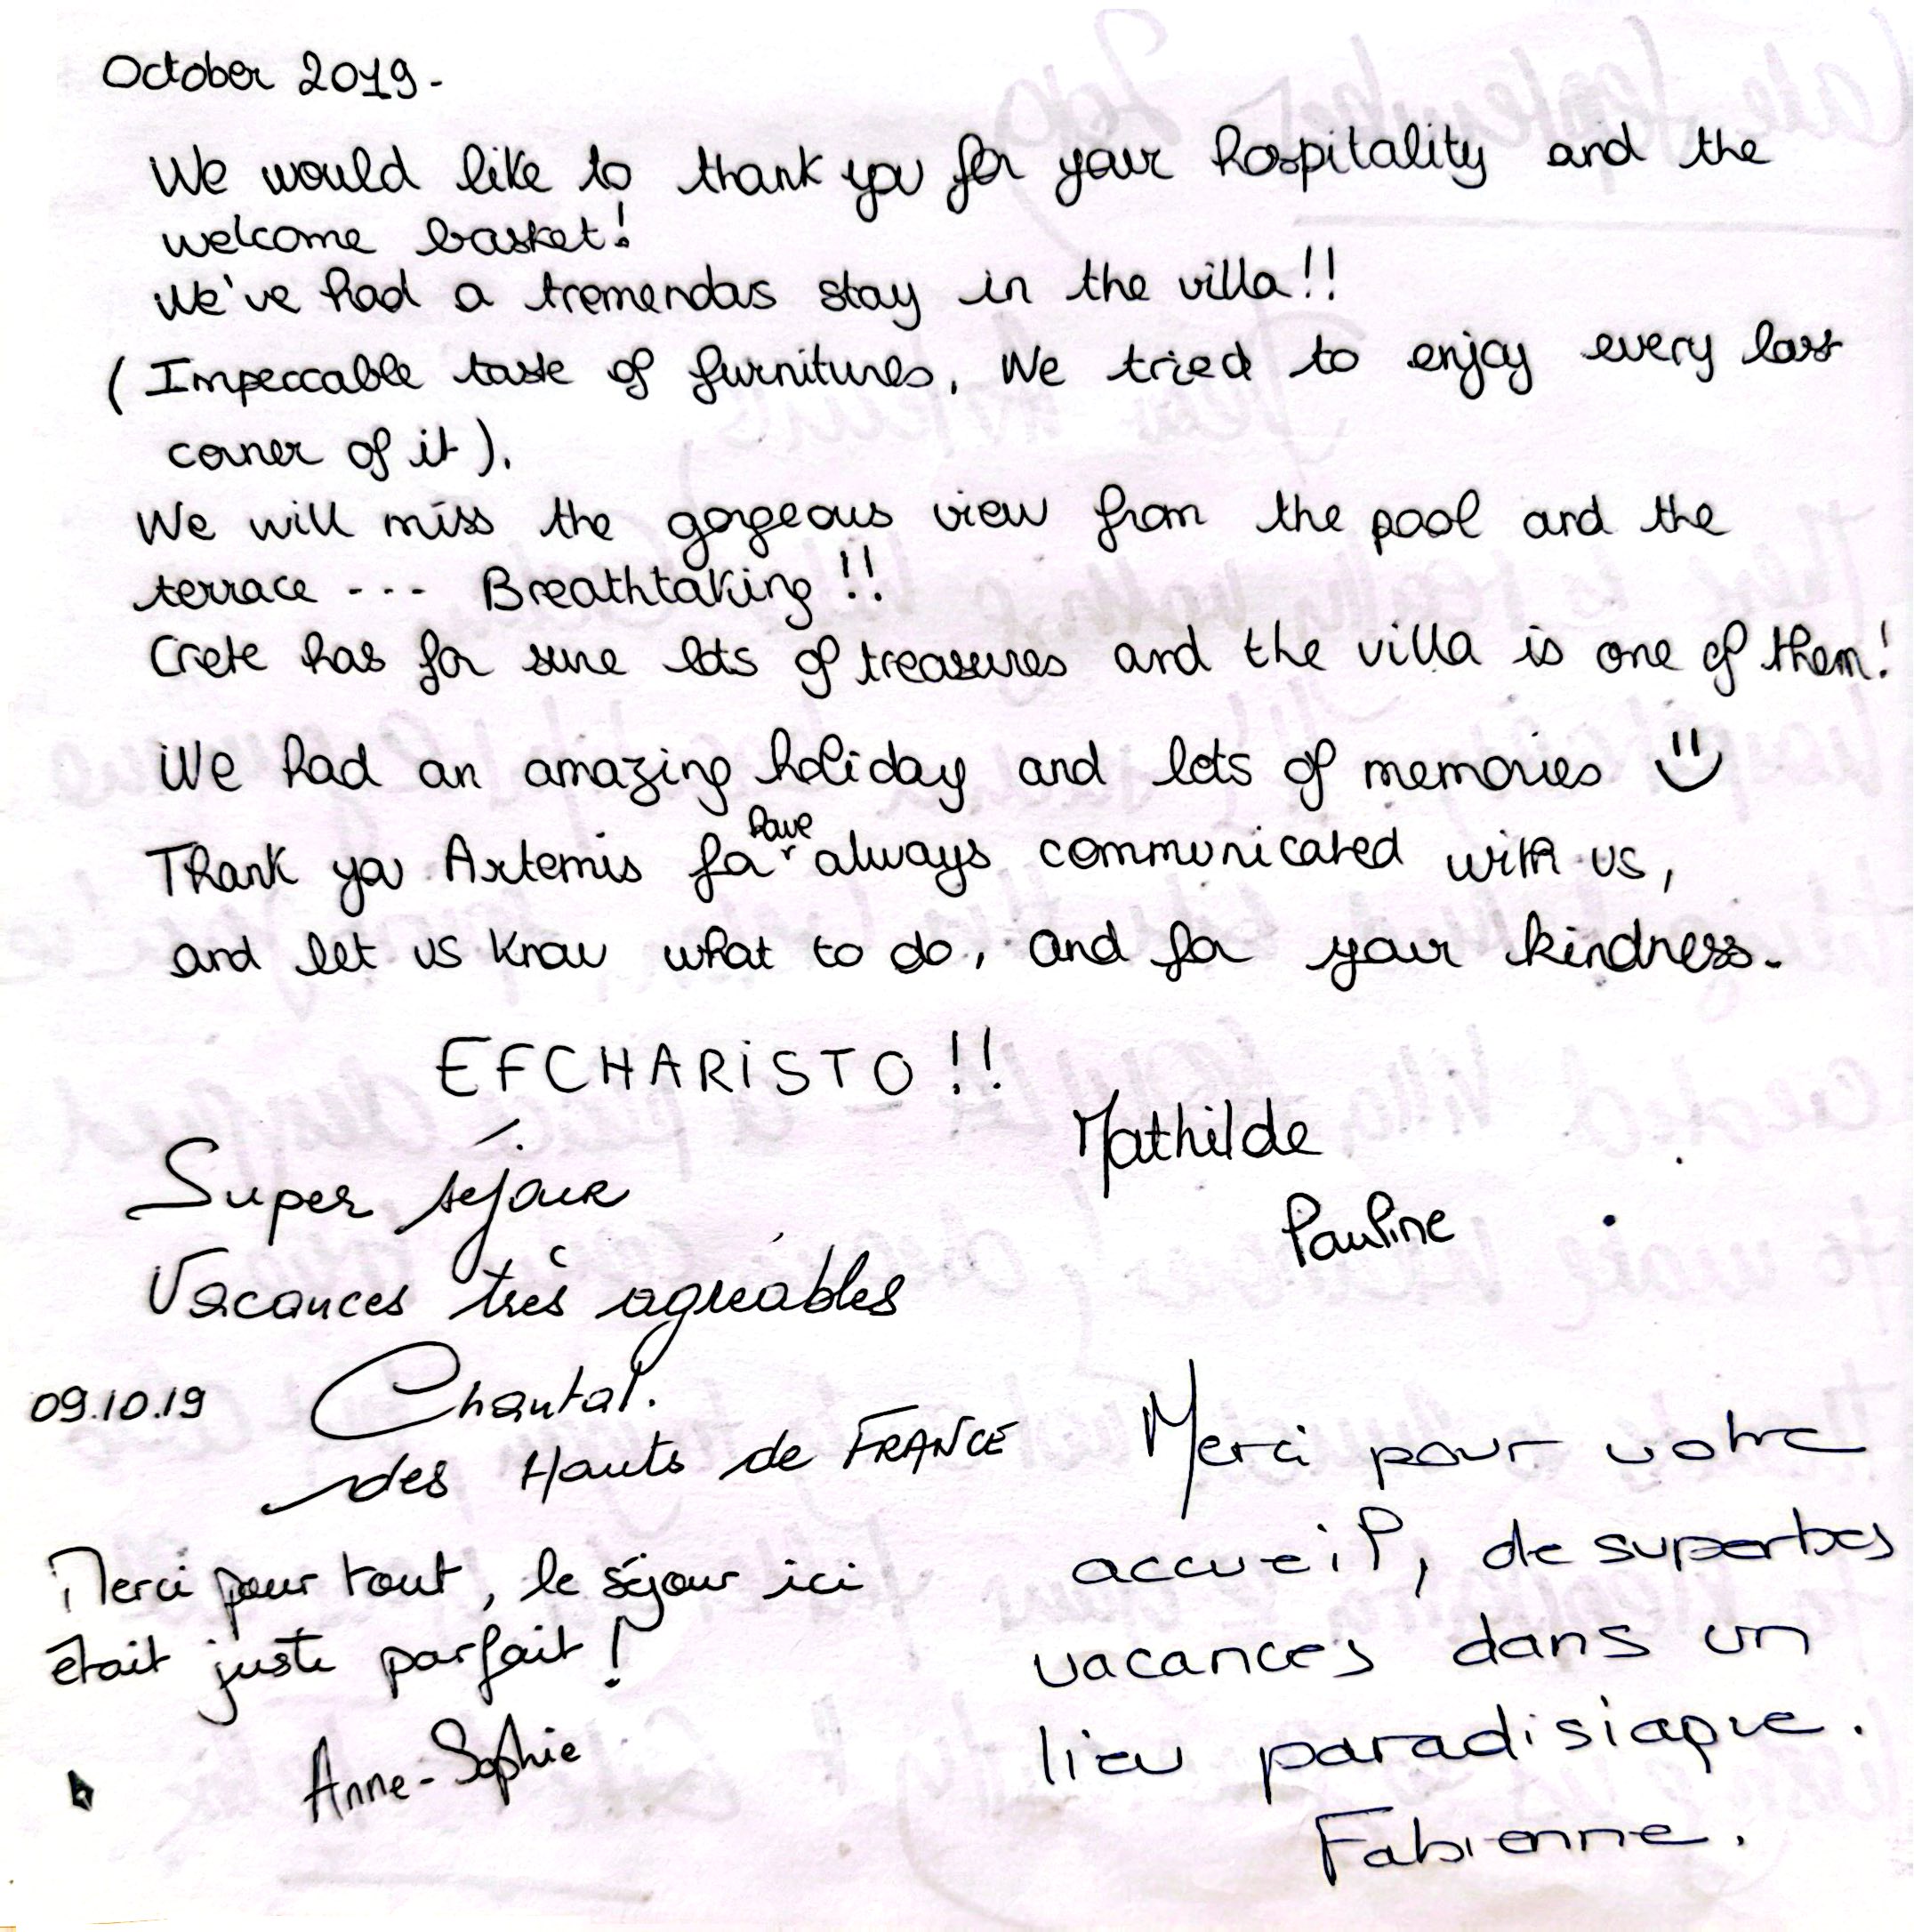 October 2019.
We would like to thank you for your hospitality and the
welcome basket!
We've had a tremendous stay in the villa!!
(Impeccable taste of furnitures. We tried to enjoy every last
corner of it).
We will miss the gorgeous view from the pool and the
terrace --- Breathtaking!!
Crete has for sure lots of treasures and the villa is one of them!
We had an amazing holiday and lots of memories
Thank you Artemis for have always communicated with us,
and let us know what to do, and for your kindness.
EFCHARiSTO!!
Mathilde
Pauline
Super séjour
Vacances très agréables
09.10.19 Chantal.
des Hauts de FRANCE
Merci pour tout, le séjour ici
était juste parfait!
Anne-Sophie
Merci pour votre
accueil, de superbes
vacances dans un
lieu paradisiaque.
Fabienne.